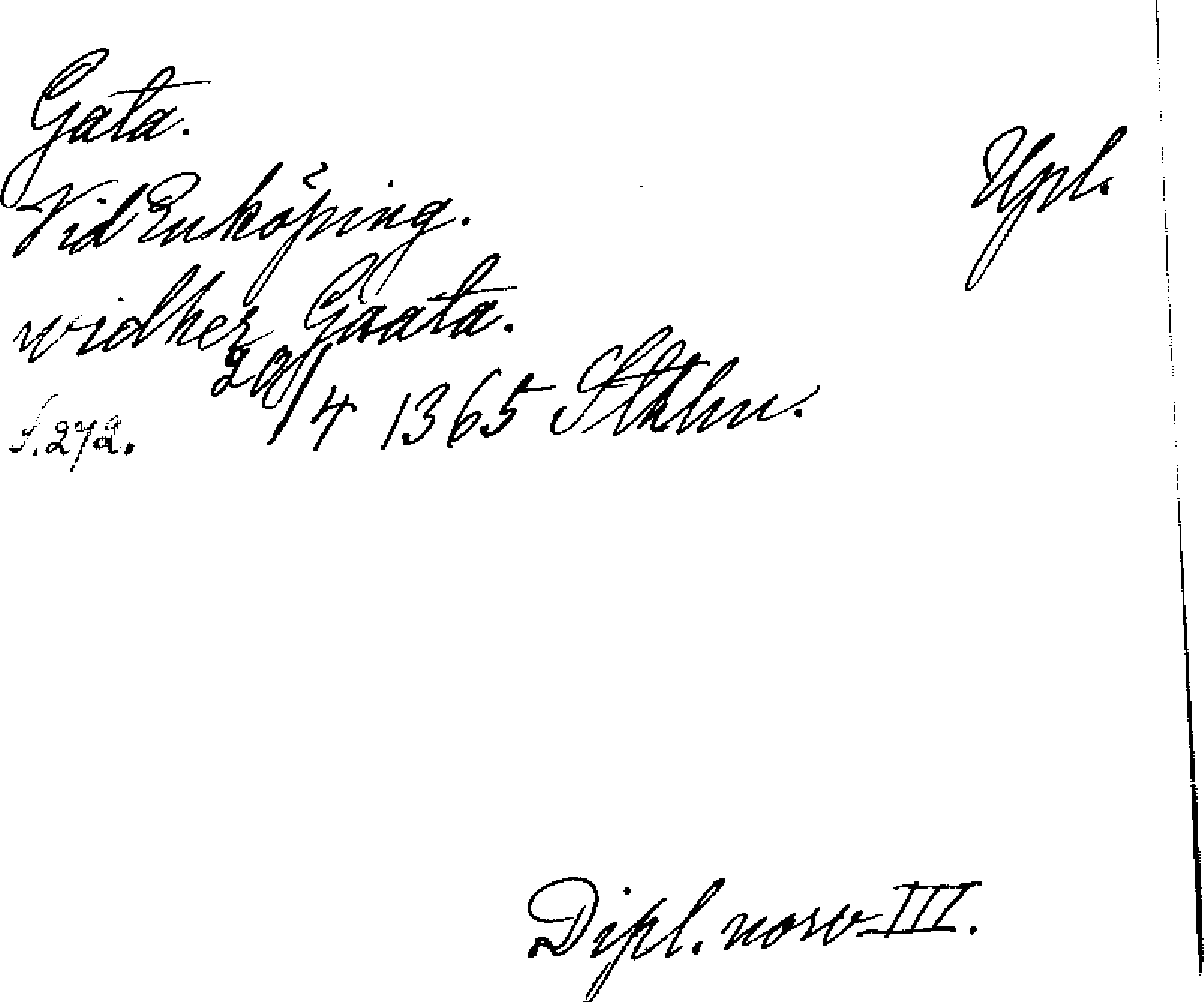 Gata.
Upl.
Vid Enköping.
widher Gaata.
29/4 1365 Stkhn.
S. 272.
Dipl. norv III.